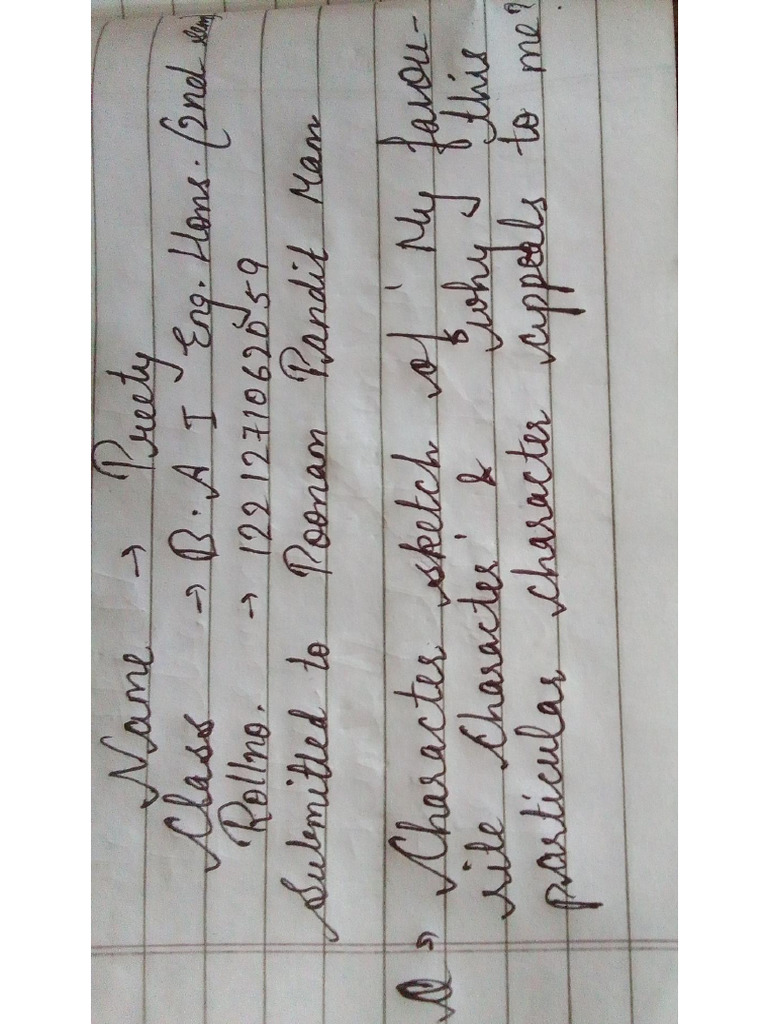 Name → Preety
Class → B.A I Eng. Hons. (2nd sem)
Rollno. → 1221271062059
Submitted to Poonam Pandit Mam
Q ⇒ Character sketch of 'My favou-
rite Character' & why this
particular character appeals to me?